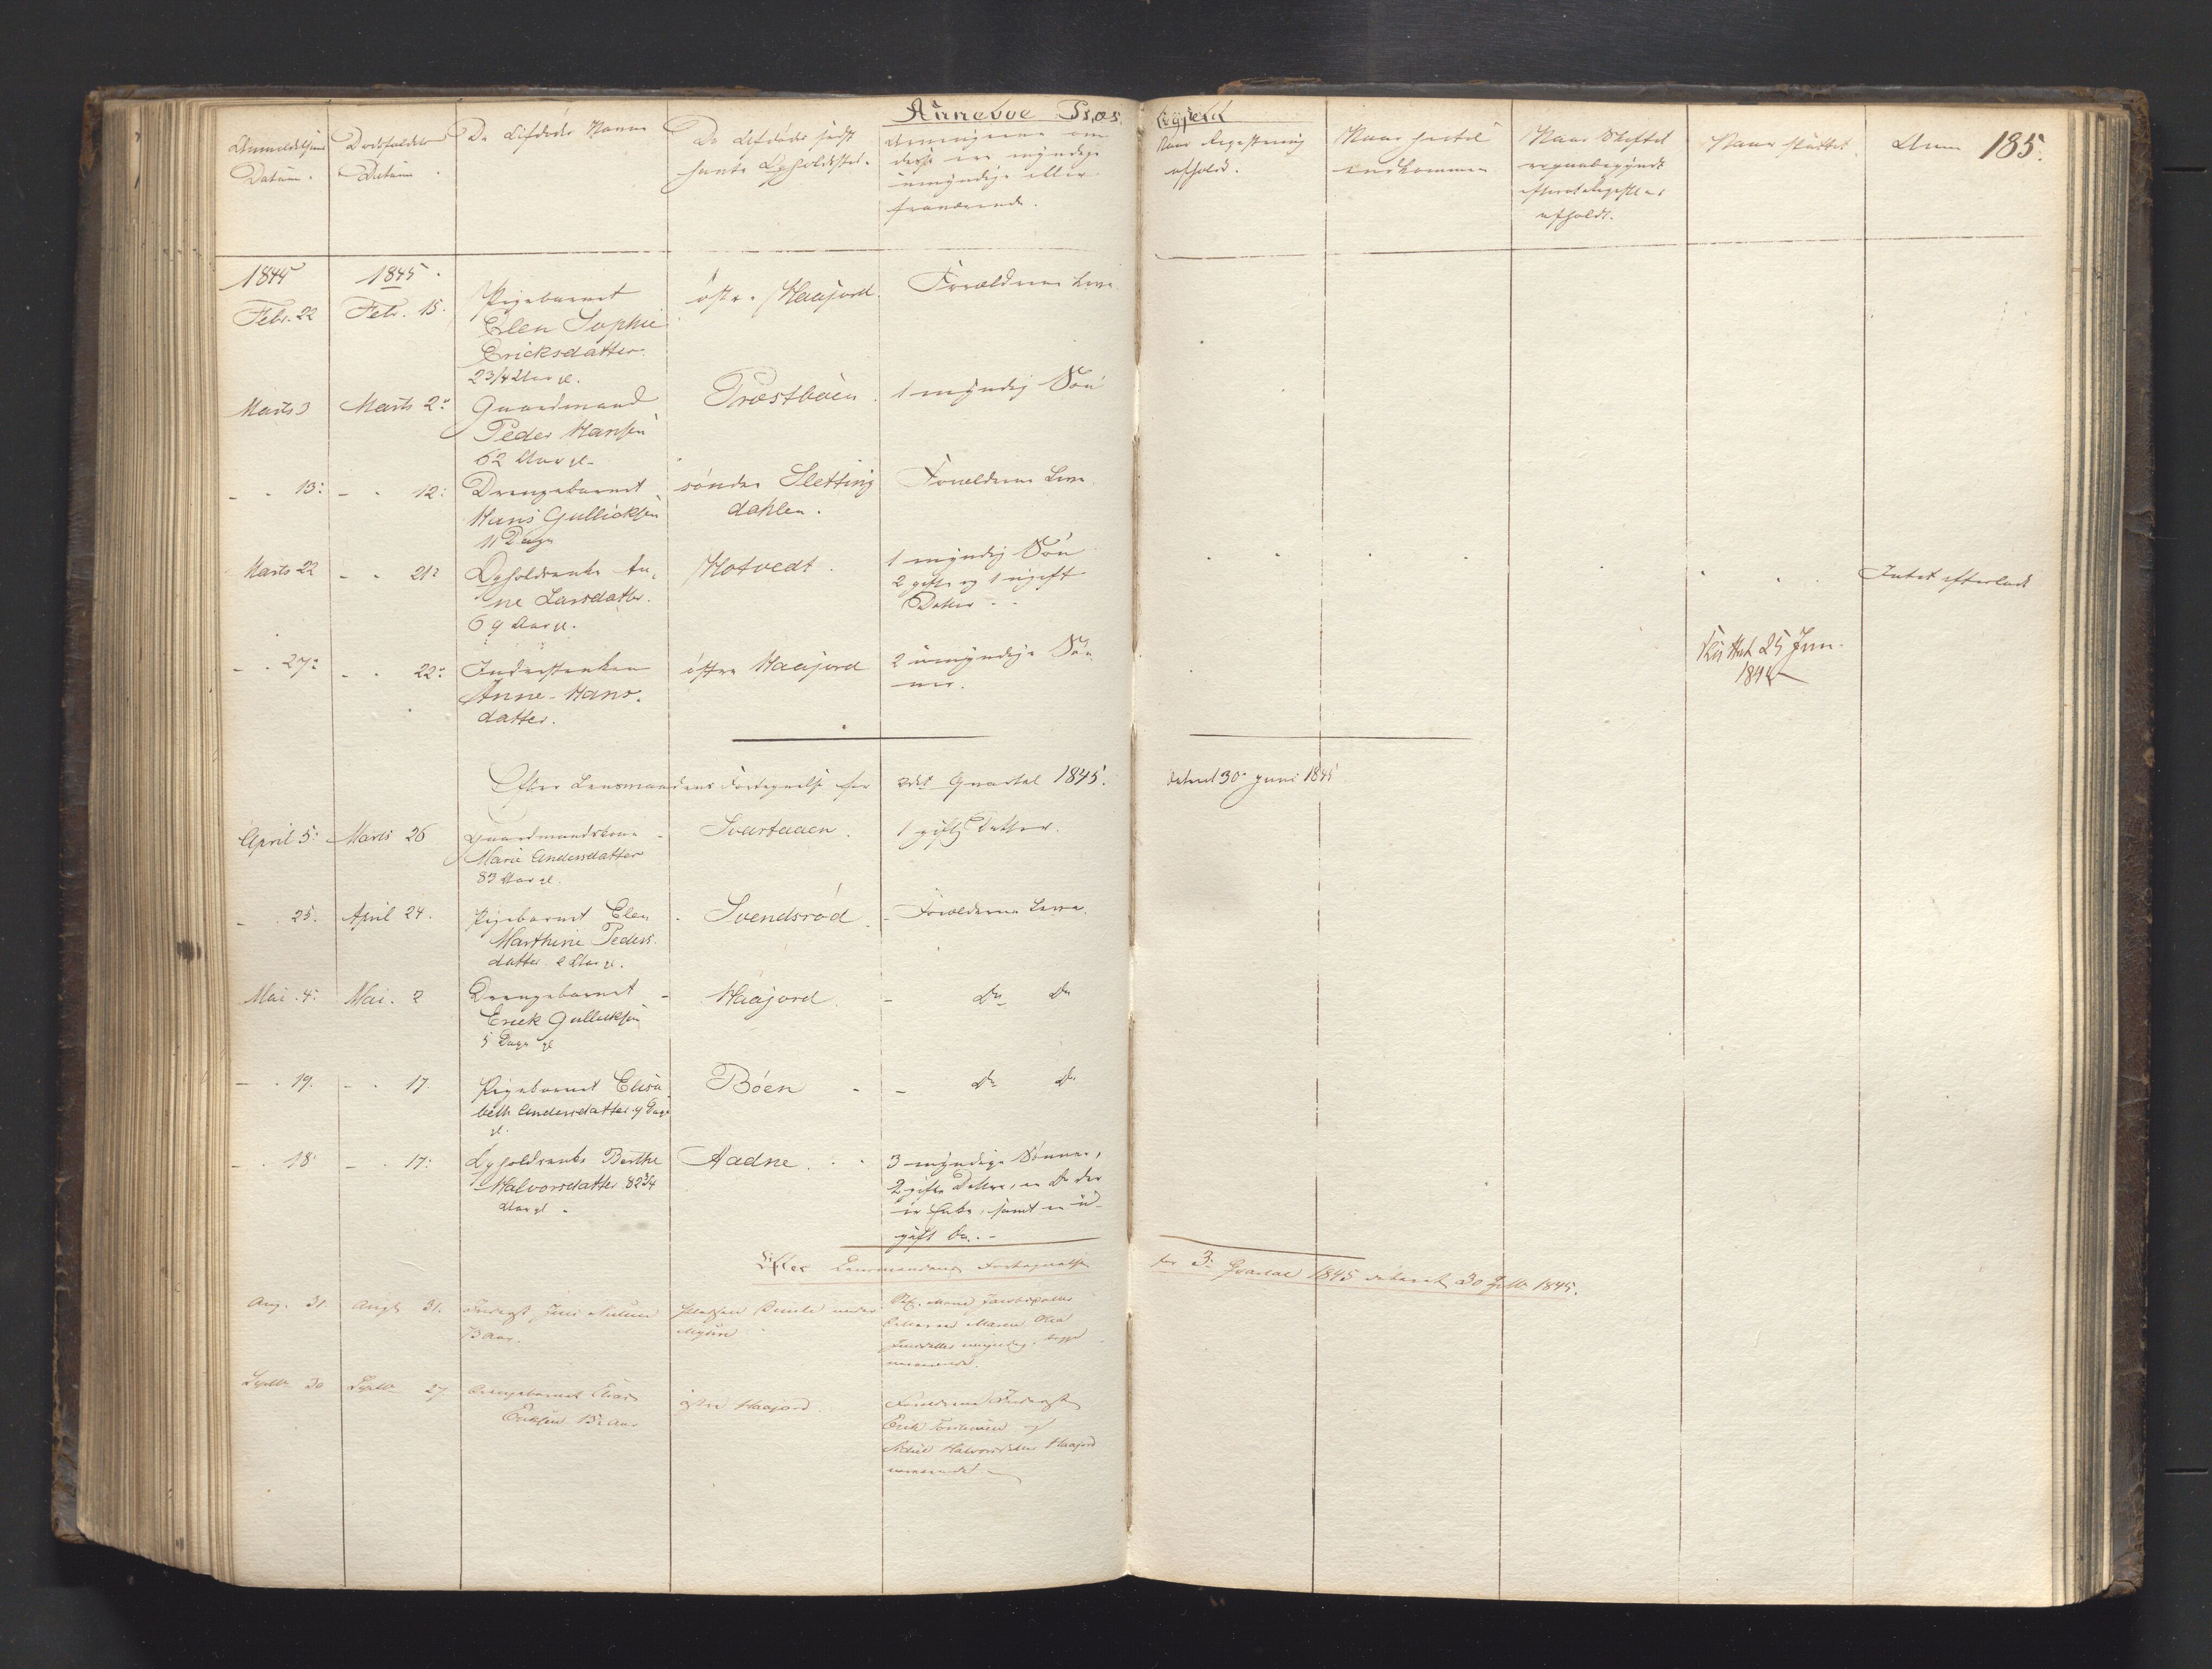 Anneboe Præs
tegjeld
185.
Anmeldelsens
Datum.
Dødsfaldets
Datum.
De Afdødes Navne
De Afdødes sidst
havte Opholdssted.
Arvingerne om
disse ere myndige
umyndige eller
fraværende.
Naar Registrering
afholdt.
Naar
indkommen
Naar Skiftet
afholdt.
Naar sluttet.
Anm
1845
1845.
Febr. 22
Febr. 15.
Pigebarnet
Elen Sophie
Ericksdatter.
2 3/4 Aar gl.
østre Haajord.
Forældrene Leve
Marts 3
Marts 2:
Gaardmand
Peder Hansen
62 Aar gl.
Præstbøen.
1 myndig Søn
- - 13:
- - 12:
Drengebarnet
Hans Gullicksen
11 Dage
søndre Sletting
dahlen.
Forældrene Leve.
Marts 22
- - 21:
Opholdsenke An-
ne Larsdatter.
69 Aar gl.
Hotvedt.
1 myndig Søn
2 gifte og 1 ugift
Døttre
Intet efterladt
- - 27:
- - 22:
Inderstenken
Anne Hans-
datter.
østre Haajord
2 umyndige Søn
ner.
Sluttet 25 Juni
Efter Lensmandens Fortegnelse for 2det Qvartal 1845.
dateret 30. Juni 1845
April 5:
Marts 26
Gaardmandskone
Marie Andersdatter
83 Aar gl.
Svartaaen.
1 gift Datter.
- 25.
April 24.
Pigebarnet Elen
Marthine Peders-
datter. 2 Aar gl.
Svendsrød
Forældrene Leve.
Mai 4:
Mai. 2
Drengebarnet
Erick Gullicksen
5 Dage gl
Haajord
Do Do
- - 19.
- - 17.
Pigebarnet Elisa-
beth Andersdatter 9 Dage
gl.
Bøen
Do Do
- - 18
- - 17:
Opholdsenke Berthe
Halvorsdatter. 82 3/4
Aar gl.
Aadne.
3 myndige Sønner,
2 gifte Døttre, en Do der
er Enke, samt en u-
gift Do.
Efter Lensmandens Fortegnelse
for 3. Qvartal 1845 dateret 30 Septbr 1845.
Aug. 31.
Augt 31.
Inderst Jens Nielsen
Pladsen under
Maren
Jensdatter myndig, begge
nærværende.
Septbr 30
Septbr 27
Drengebarnet
Eriksen Aar
østre Haajord.
Forældrene Inderst
Erik og
Halvorsdatter Haajord
nærværende.